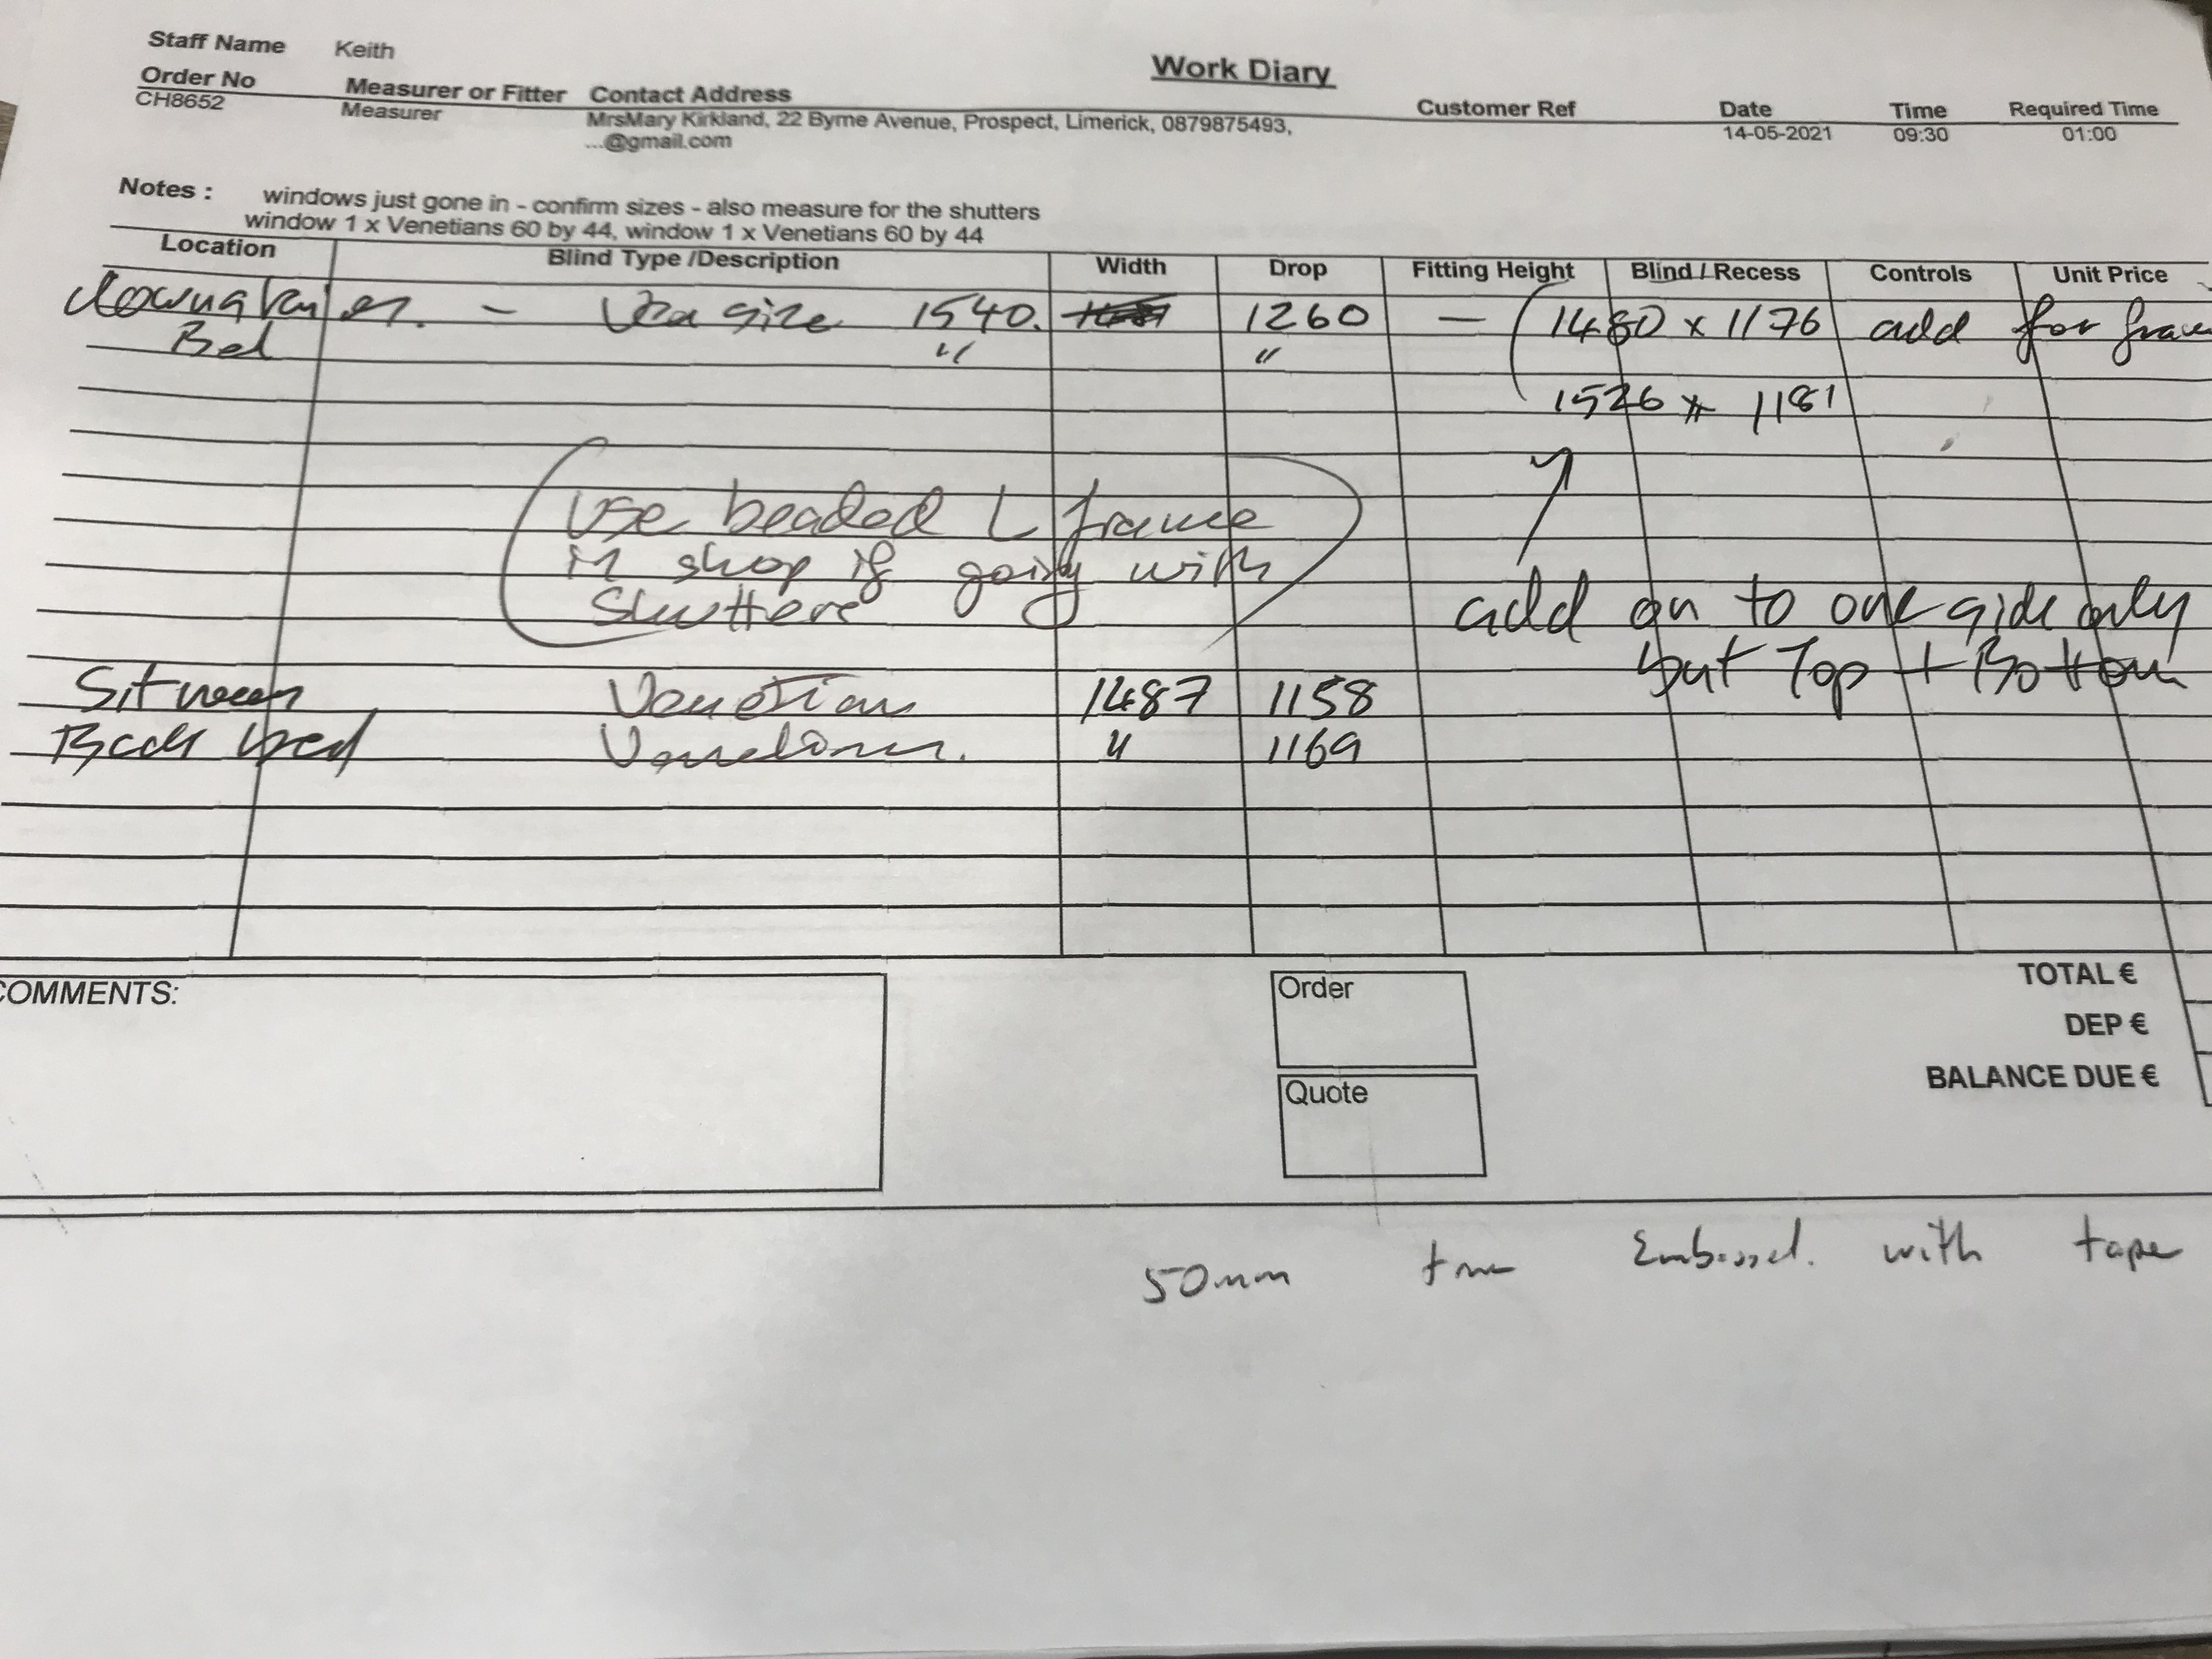 Work Diary
Staff Name Keith
Order No Measurer or Fitter Contact Address Customer Ref Date Time Required Time
CH8652 Measurer MrsMary Kirkland, 22 Byrne Avenue, Prospect, Limerick, 0879875493, 14-05-2021 09:30 01:00
...@gmail.com
Notes : windows just gone in - confirm sizes - also measure for the shutters
window 1 x Venetians 60 by 44, window 1 x Venetians 60 by 44
Location Blind Type /Description Width Drop Fitting Height Blind / Recess Controls Unit Price
Downstairs. - size 1540. 1260 - ( 1480 x 1176 add for fram
Bed " "
1526 x 1181
(Use beaded L frame
in shop if going with
Shutters)
add on to one side only
but Top + Bottom
Sit room Venetian 1487 1158
Back bed Venetian. " 1169
COMMENTS:
Order
Quote
TOTAL €
DEP €
BALANCE DUE €
50mm Embossed. with tape